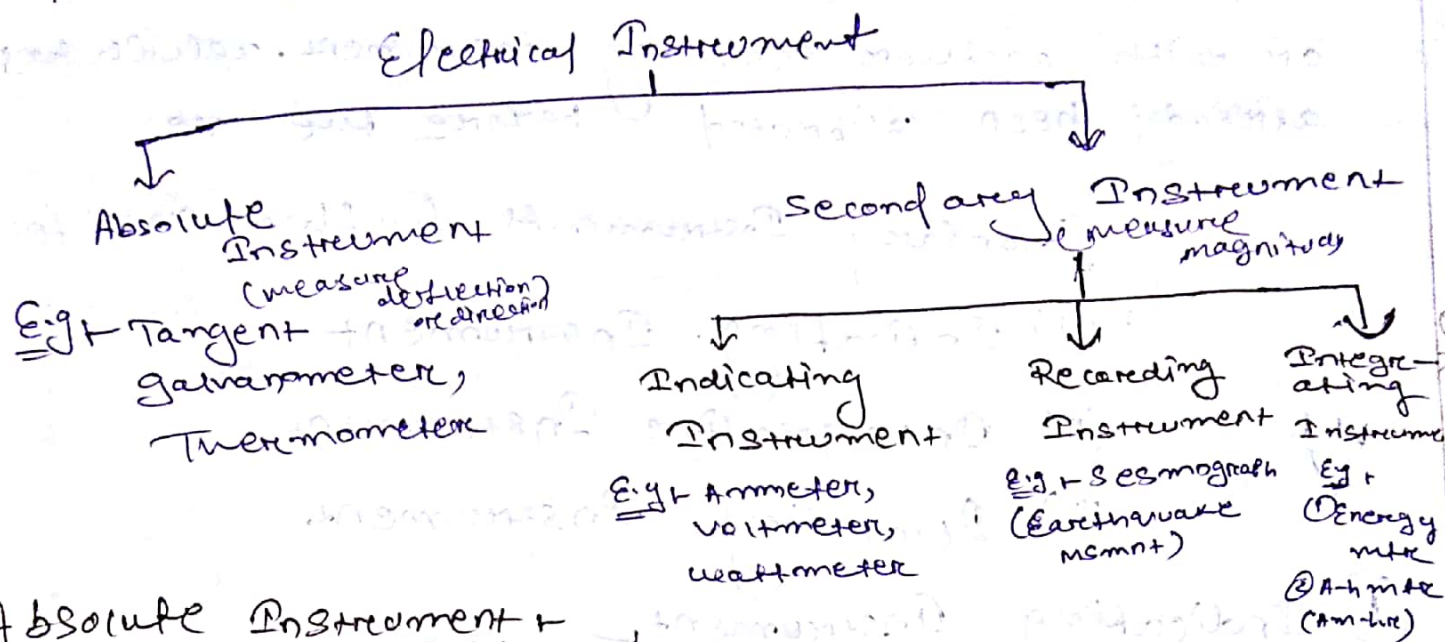 Electrical Instrument
Absolute
Instrument
(measure
deflection)
or direction
E.g:- Tangent
galvanometer,
Thermometer
Secondary Instrument
(measure
magnitude)
Indicating
Instrument
E.g:- Ammeter,
voltmeter,
wattmeter
Recording
Instrument
E.g:- Sesmograph
(Earthquake
msmnt)
Integr-
ating
Instrume
Eg:
① Energy
mtr
② A-h mtr
(Am-hr)
Absolute Instrument:-